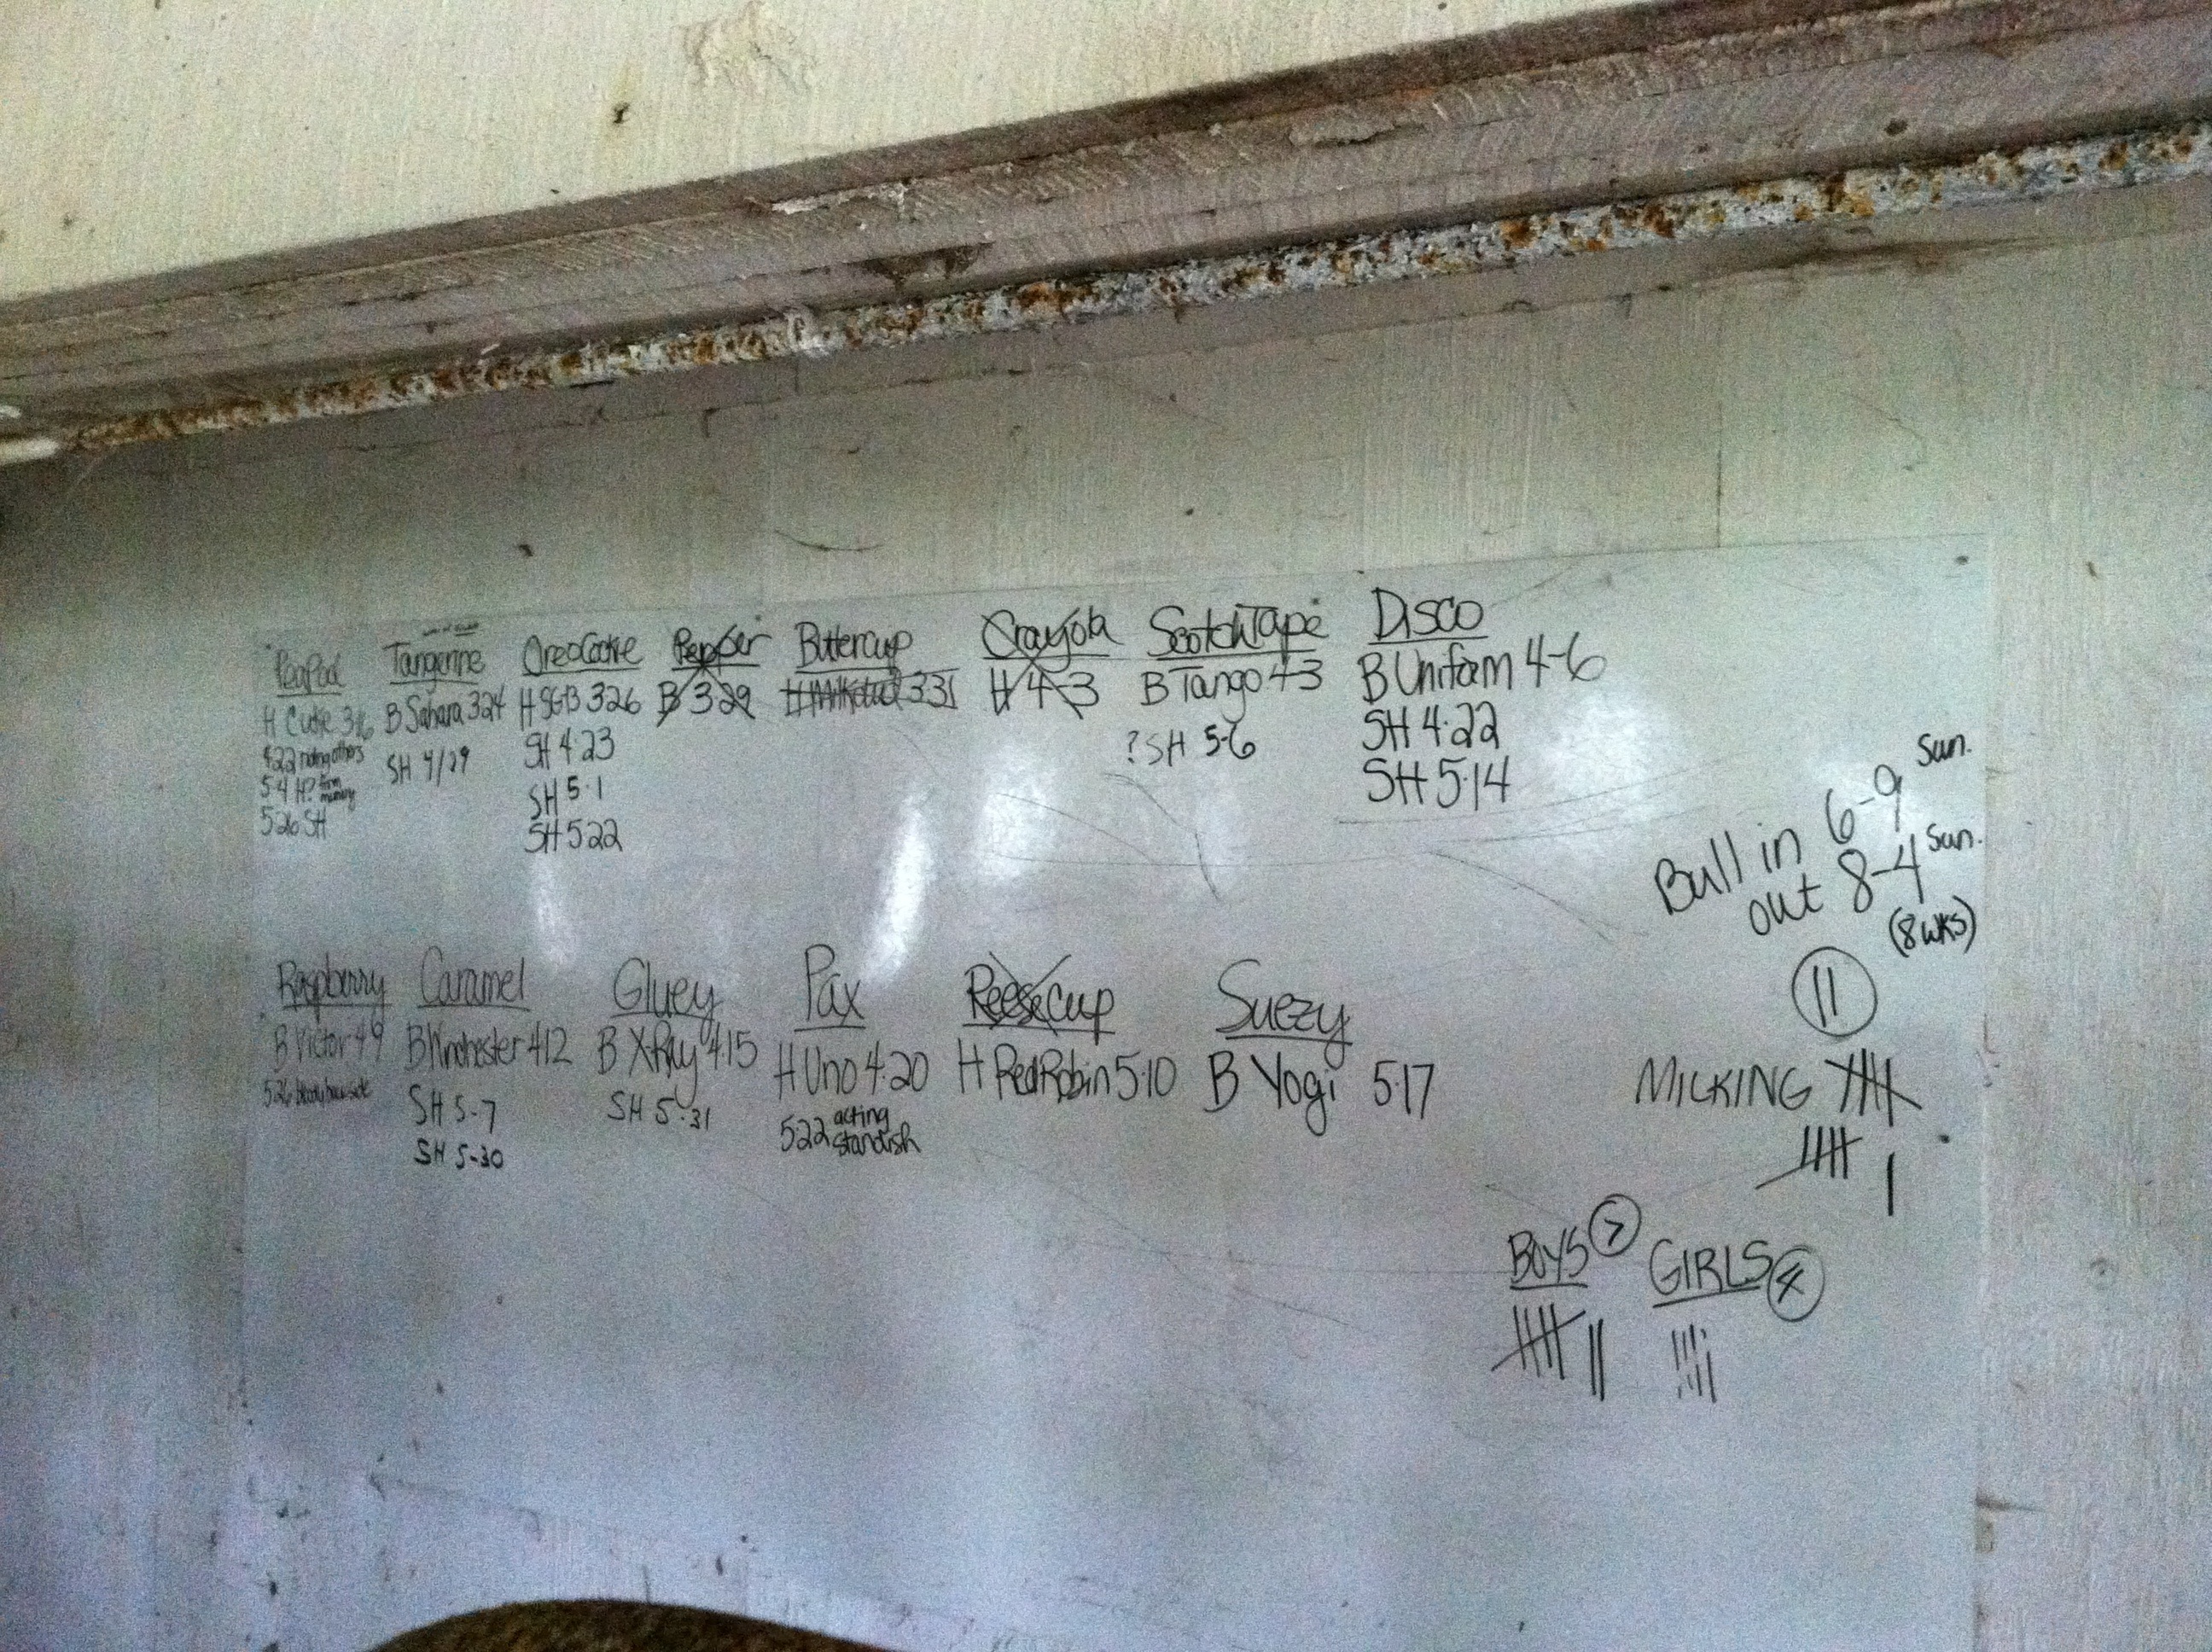 PeaPod
H Cutie 3-16
4-22 riding others
5-4 H? from mucusy
5-26 SH
Tangerine
B Sahara 3-24
SH 4/29
OreoCookie
H SGB 3-26
SH 4-23
SH 5-1
SH 5-22
Pepper
B 3-29
Buttercup
H Milkdud 3-31
Crayola
H 4-3
ScotchTape
B Tango 4-3
? SH 5-6
Disco
B Uniform 4-6
SH 4-22
SH 5-14
Bull in 6-9 Sun.
out 8-4 Sun.
(8 wks)
11
MILKING
Raspberry
B Victor 4-9
Caramel
B Winchester 4-12
SH 5-7
SH 5-30
Gluey
B X-Ray 4-15
SH 5-31
Pax
H Uno 4-20
5-22 acting
standish
ReeseCup
H RedRobin 5-10
Suezy
B Yogi 5-17
BOYS 7
GIRLS 4